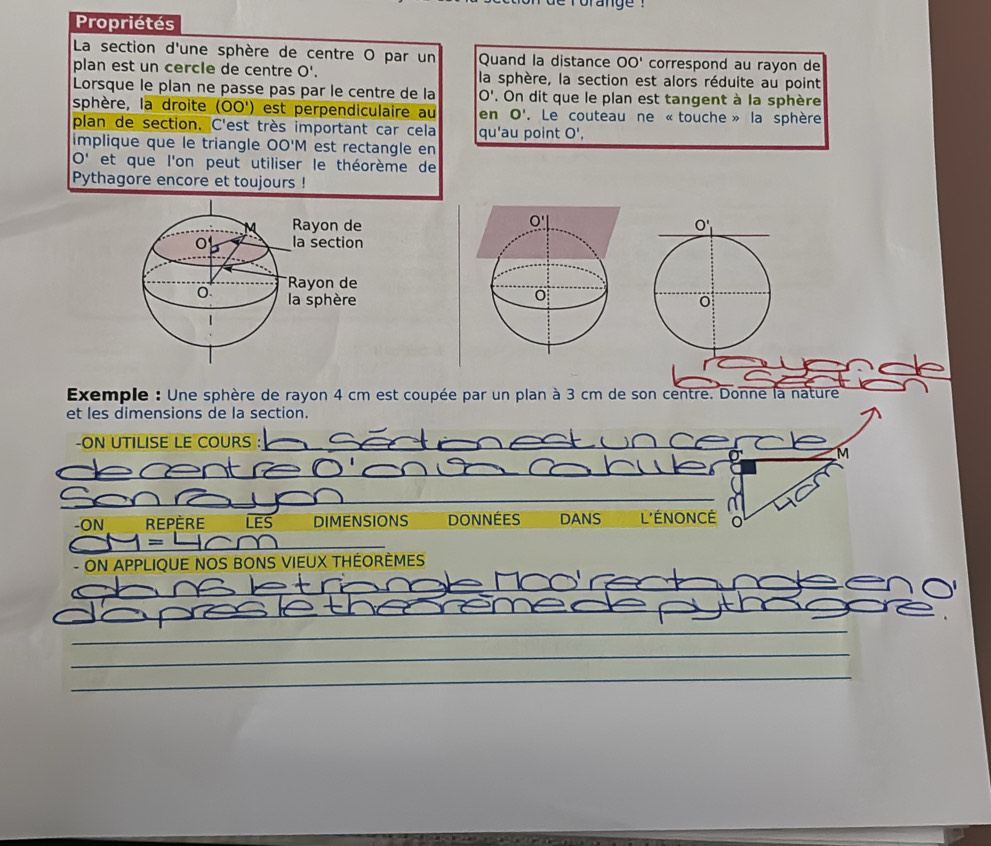 Propriétés
La section d'une sphère de centre O par un
plan est un cercle de centre O'.
Lorsque le plan ne passe pas par le centre de la
sphère, la droite (OO') est perpendiculaire au
plan de section. C'est très important car cela
implique que le triangle OO'M est rectangle en
O' et que l'on peut utiliser le théorème de
Pythagore encore et toujours !
Quand la distance OO' correspond au rayon de
la sphère, la section est alors réduite au point
O'. On dit que le plan est tangent à la sphère
en O'. Le couteau ne « touche » la sphère
qu'au point O'.
M
Rayon de
la section
O'
Rayon de
la sphère
O
O'
O
O'
O
rayon de
la section
Exemple : Une sphère de rayon 4 cm est coupée par un plan à 3 cm de son centre. Donne la nature
et les dimensions de la section.
-ON UTILISE LE COURS : la séction est un cercle
de centre O' on va calculer
son rayon
O'
M
3cm
4cm
O
-ON REPÈRE LES DIMENSIONS DONNÉES DANS L'ÉNONCÉ
OM = 4cm
- ON APPLIQUE NOS BONS VIEUX THÉORÈMES
dans le triangle MOO' rectangle en O'
d'apres le théorème de pythagore.